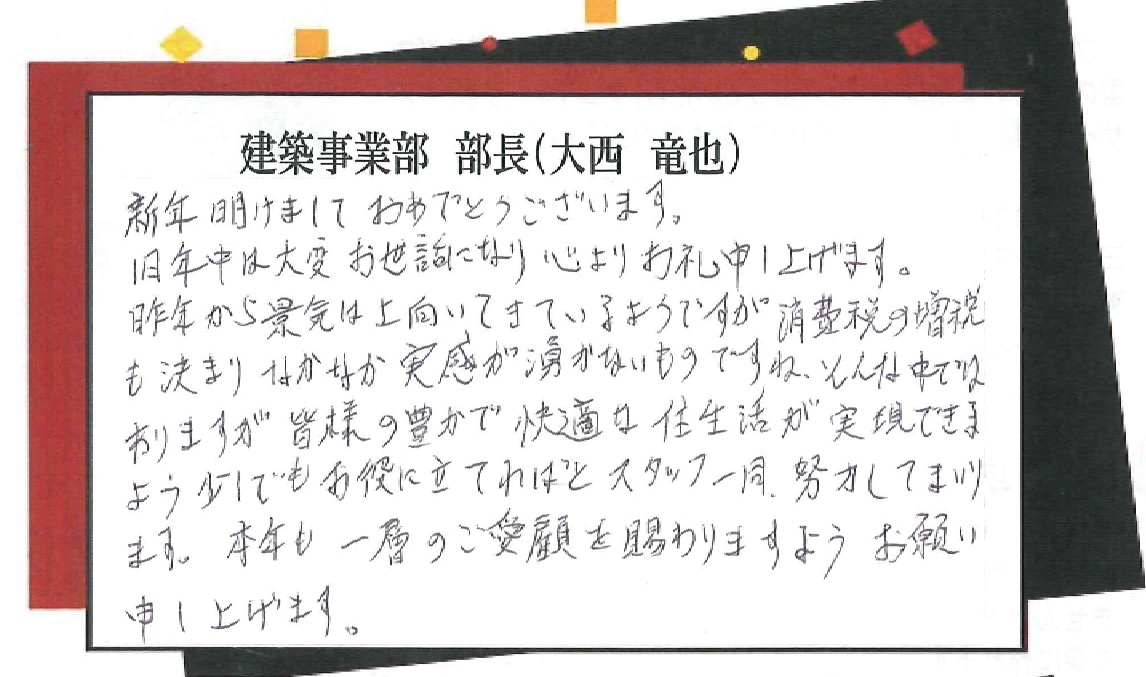 建築事業部 部長(大西 竜也)
新年明けましておめでとうございます。
旧年中は大変お世話になり心よりお礼申し上げます。
昨年から景気は上向いてきているようですが消費税の増税
も決まりなかなか実感が湧かないものですね、そんな中では
ありますが皆様の豊かで快適な住生活が実現できま
よう少しでもお役に立てればとスタッフ一同、努力してまいり
ます。本年も一層のご愛顧を賜わりますようお願い
申し上げます。